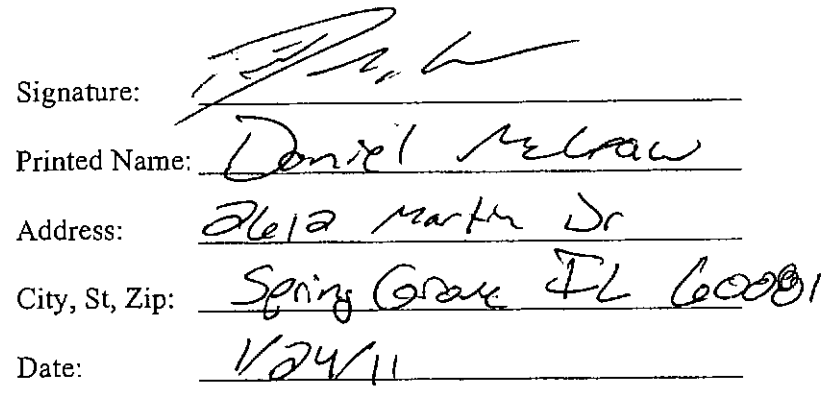 Signature:
Printed Name: Daniel McGraw
Address: 2612 Martin Dr
City, St, Zip: Spring Grove IL 60081
Date: 1/24/11